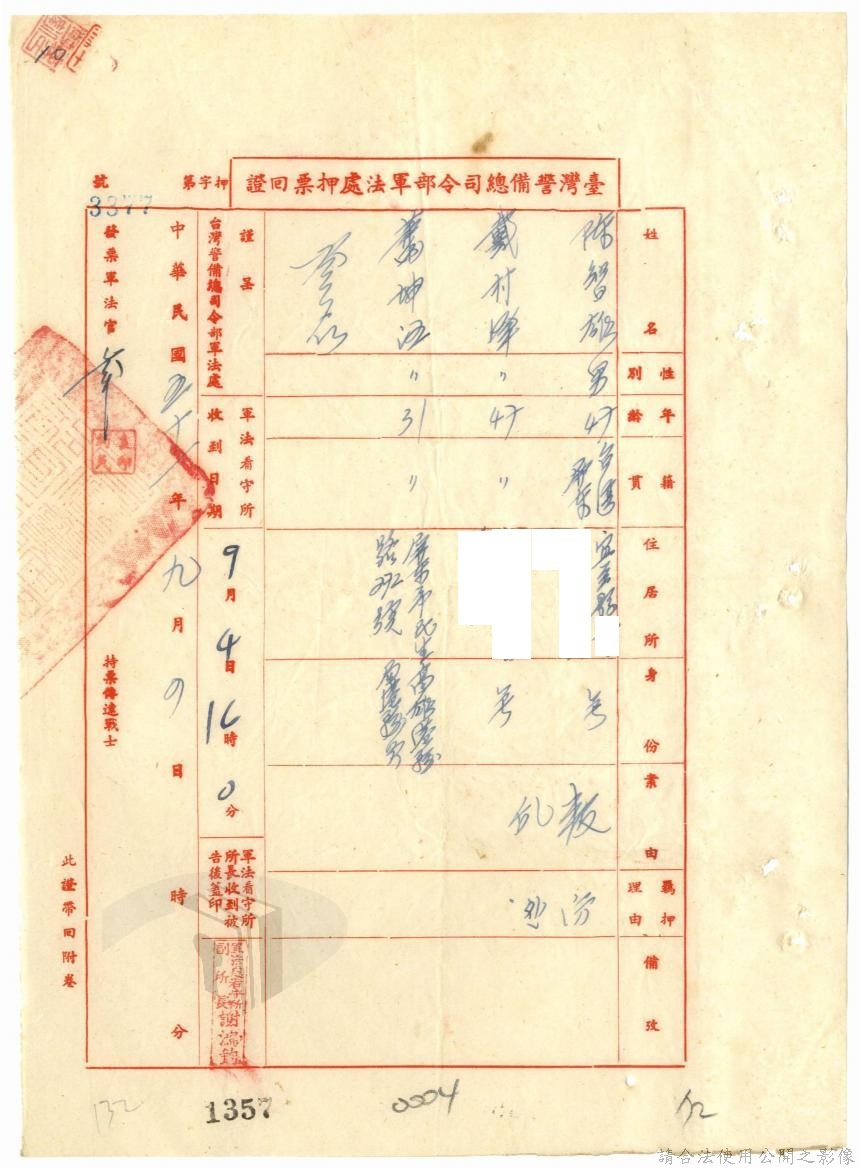 臺灣警備總司令部軍法處押票回證
押字第 3377 號
姓名 陳智雄 戴村澤 蕭坤旺
性別 男 〃 〃
年齡 47 47 31
籍貫 台灣屏東 〃 〃
住居所 宜蘭縣
屏東市民生
路292號
身份 無 無 高雄港務局
案由 叛亂
羈押理由
備攷
謹呈
台灣警備總司令部軍法處
軍法看守所收到日期 9月4日16時0分
軍法看守所所長收到被告後蓋印
軍法處看守所副所長謝鴻鈞
中華民國五十一年九月 日 時 分
發票軍法官
持票傳達戰士
此證帶回附卷
10
132
1357
0004
請合法使用公開之影像